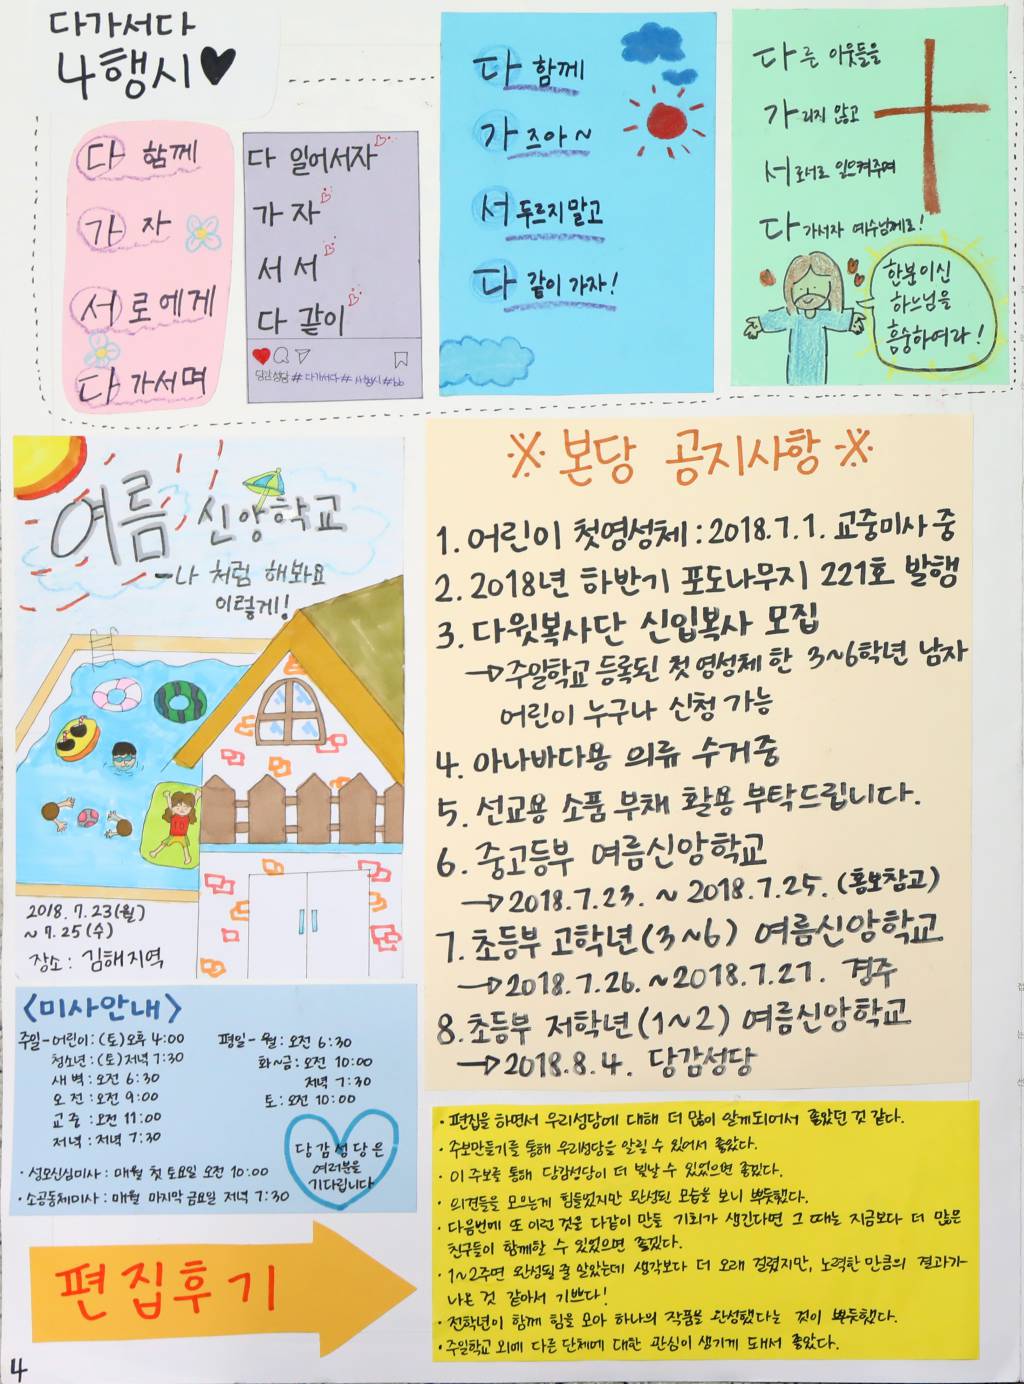 다가서다
4행시♥
다 함께
가 자
서로에게
다가서며
다 일어서자
가 자
서 서
다 같이
당감성당 #다가서다 #사행시 #bb
다 함께
가 즈아~
서 두르지말고
다 같이 가자!
다 른 이웃들을
가 리지 않고
서 로서로 일으켜주며
다 가서자 예수님께로!
한분이신
하느님을
흠숭하여라!
여름 신앙학교
-나 처럼 해봐요
이렇게!
10
2018.7.23(월)
~7.25(수)
장소: 김해지역
※ 본당 공지사항 ※
1. 어린이 첫영성체 : 2018.7.1. 교중미사 중
2. 2018년 하반기 포도나무지 221호 발행
3. 다윗복사단 신입복사 모집
→주일학교 등록된 첫영성체 한 3~6학년 남자
어린이 누구나 신청 가능
4. 아나바다용 의류 수거중
5. 선교용 소품 부채 활용 부탁드립니다.
6. 중고등부 여름신앙학교
→2018.7.23. ~ 2018.7.25. (홍보참고)
7. 초등부 고학년(3~6) 여름신앙학교
→2018.7.26. ~2018.7.27. 경주
8. 초등부 저학년(1~2) 여름신앙학교
→2018.8.4. 당감성당
<미사안내>
주일-어린이:(토)오후 4:00
청소년:(토)저녁 7:30
새벽:오전 6:30
오전:오전 9:00
교중:오전 11:00
저녁:저녁 7:30
평일-월:오전 6:30
화~금:오전 10:00
저녁 7:30
토:오전 10:00
·성모신심미사 : 매월 첫 토요일 오전 10:00
·소공동체미사 : 매월 마지막 금요일 저녁 7:30
당감성당은
여러분을
기다립니다
편집후기
·편집을 하면서 우리성당에 대해 더 많이 알게되어서 좋았던 것 같다.
·주보만들기를 통해 우리성당을 알릴 수 있어서 좋았다.
·이 주보를 통해 당감성당이 더 빛날 수 있었으면 좋겠다.
·의견들을 모으는게 힘들었지만 완성된 모습을 보니 뿌듯했다.
·다음번에 또 이런 것을 다같이 만들 기회가 생긴다면 그 때는 지금보다 더 많은
친구들이 함께할 수 있었으면 좋겠다.
·1~2주면 완성될 줄 알았는데 생각보다 더 오래 걸렸지만, 노력한 만큼의 결과가
나온 것 같아서 기쁘다!
·전학년이 함께 힘을 모아 하나의 작품을 완성했다는 것이 뿌듯했다.
·주일학교 외에 다른 단체에 대한 관심이 생기게 돼서 좋았다.
4